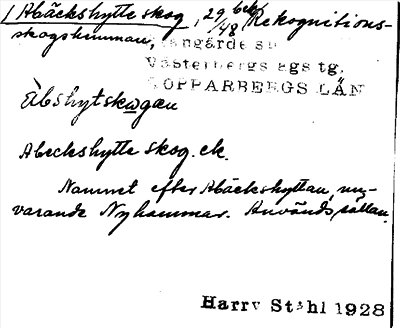 1 Abäckshytte skog, 29/48 beb. Rekognitions-
skogshemman,
Grangärde sn
Västerbergs ags tg.
KOPPARBERGS LÄN
Åbshytskogæn
Abeckshytte skog. ek.
Namnet efter Abäckshyttan, nu-
varande Nyhammar. Används sällan.
Harry Ståhl 1928